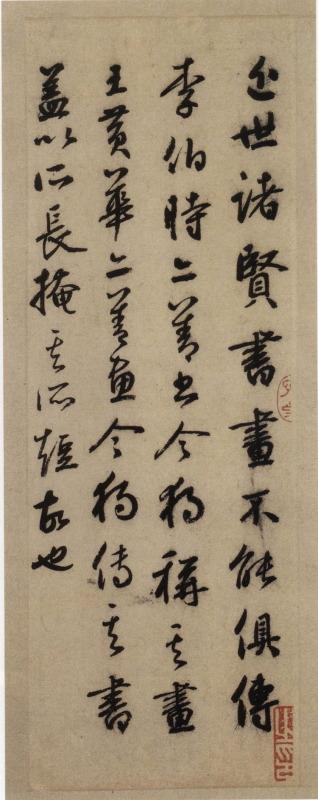 近世諸賢書畫不能俱傳
李伯時亦善書今獨稱其畫
王黃華亦善畫今獨傳其書
蓋以所長掩其所短故也